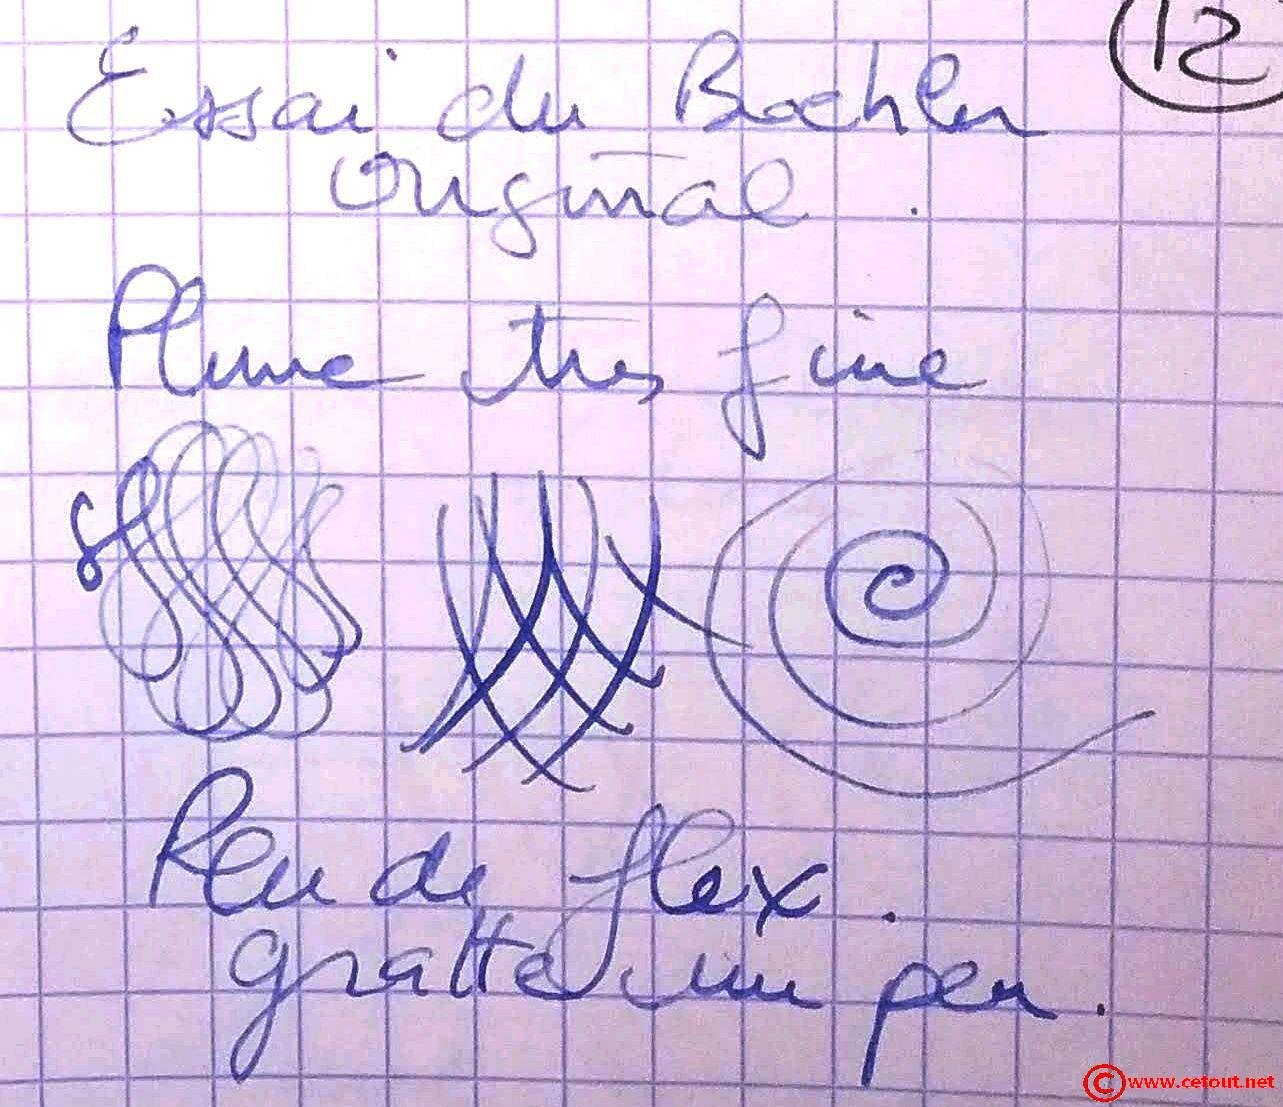 12
Essai du Boehler
Original.
Plume très fine
Peu de flex.
gratte un peu.
©www.cetout.net